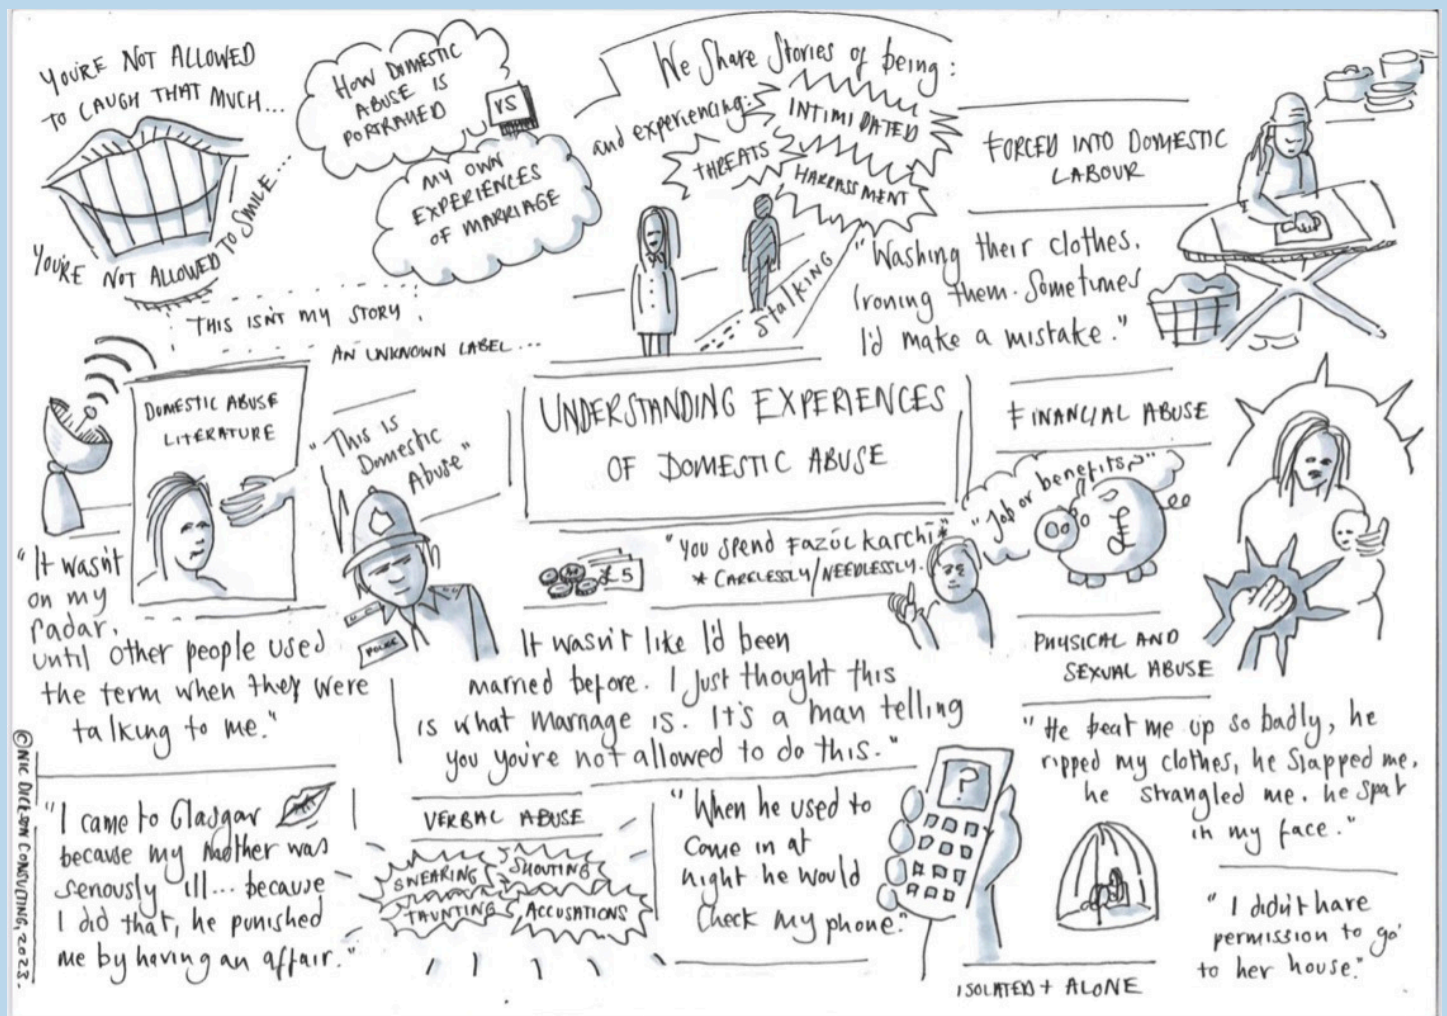 YOU'RE NOT ALLOWED
TO LAUGH THAT MUCH...
YOU'RE NOT ALLOWED TO SMILE...
HOW DOMESTIC
ABUSE IS
PORTRAYED
VS
MY OWN
EXPERIENCES
OF MARRIAGE
We Share Stories of being:
and experiencing:
INTIMIDATED
THREATS
HARRASSMENT
Stalking
FORCED INTO DOMESTIC
LABOUR
"Washing their clothes.
Ironing them. Sometimes
I'd make a mistake."
THIS ISN'T MY STORY
AN UNKNOWN LABEL...
DOMESTIC ABUSE
LITERATURE
"It wasn't
on my
radar,
until other people used
the term when they were
talking to me."
"This is
Domestic
Abuse"
POLICE
UNDERSTANDING EXPERIENCES
OF DOMESTIC ABUSE
FINANCIAL ABUSE
"Job or benefits?"
£
£5
"You spend Fazúl Karchi"*
* CARELESSLY/NEEDLESSLY.
It wasn't like I'd been
married before. I just thought this
is what marriage is. It's a man telling
you you're not allowed to do this."
PHYSICAL AND
SEXUAL ABUSE
"He beat me up so badly, he
ripped my clothes, he slapped me,
he strangled me. he spat
in my face."
"I came to Glasgow
because my mother was
seriously ill... because
I did that, he punished
me by having an affair."
VERBAL ABUSE
SWEARING
SHOUTING
TAUNTING
ACCUSATIONS
"When he used to
come in at
night he would
check my phone."
?
ISOLATED + ALONE
"I didn't have
permission to go
to her house."
©NIC DICKSON CONSULTING, 2023.